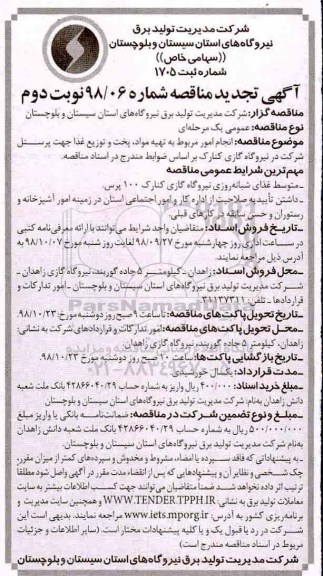 شرکت مدیریت تولید برق
نیروگاه‌های استان سیستان و بلوچستان
((سهامی خاص))
شماره ثبت ۱۷۰۵
آگهی تجدید مناقصه شماره ۹۸/۰۶ نوبت دوم
مناقصه گزار: شرکت مدیریت تولید برق نیروگاه‌های استان سیستان و بلوچستان
نوع مناقصه: عمومی یک مرحله‌ای
موضوع مناقصه: انجام امور مربوط به تهیه مواد، پخت و توزیع غذا جهت پرسنل
شرکت در نیروگاه گازی کنارک بر اساس ضوابط مندرج در اسناد مناقصه.
مهم‌ترین شرایط عمومی مناقصه
ـ متوسط غذای شبانه‌روزی نیروگاه گازی کنارک ۱۰۰ پرس.
ـ داشتن تأییدیه صلاحیت از اداره کار و امور اجتماعی استان در زمینه امور آشپزخانه و
رستوران و حسن سابقه در کارهای قبلی.
ـ تاریخ فروش اسناد: متقاضیان واجد شرایط می‌توانند با ارائه معرفی‌نامه کتبی
در ساعات اداری روز چهارشنبه مورخ ۹۸/۰۹/۲۷ لغایت روز شنبه مورخ ۹۸/۱۰/۰۷ به
آدرس ذیل مراجعه نمایند.
ـ محل فروش اسناد: زاهدان ـ کیلومتر ۵ جاده گوربند، نیروگاه گازی زاهدان ـ
شرکت مدیریت تولید برق نیروگاه‌های استان سیستان و بلوچستان ـ امور تدارکات و
قراردادها ـ تلفن: ۳۱۱۳۷۳۱۱
ـ تاریخ تحویل پاکت‌های مناقصه: تا ساعت ۹ صبح روز دوشنبه مورخ: ۹۸/۱۰/۲۳
ـ محل تحویل پاکت‌های مناقصه: امور تدارکات و قراردادهای شرکت به نشانی:
زاهدان، کیلومتر ۵ جاده گوربند، نیروگاه گازی زاهدان
ـ تاریخ بازگشایی پاکت‌ها: ساعت ۱۰ صبح روز دوشنبه مورخ ۹۸/۱۰/۲۳
ـ مدت قرارداد: یکسال خورشیدی
ـ مبلغ خرید اسناد: ۴۰۰/۰۰۰ ریال واریز به شماره حساب ۴۲۸۶۶۰۴۰/۲۹ بانک ملت شعبه
دانش زاهدان به‌نام: شرکت مدیریت تولید برق نیروگاه‌های استان سیستان و بلوچستان
ـ مبلغ و نوع تضمین شرکت در مناقصه: ضمانت‌نامه بانکی یا واریز مبلغ
۵۰۰/۰۰۰/۰۰۰ ریال به شماره حساب ۴۲۸۶۶۰۴۰/۲۹ بانک ملت شعبه دانش زاهدان
به‌نام شرکت مدیریت تولید برق نیروگاه‌های استان سیستان و بلوچستان.
ـ به پیشنهاداتی که فاقد سپرده یا امضاء، مشروط و مخدوش و سپرده‌های کمتر از میزان مقرر،
چک شخصی و نظایر آن و پیشنهادهایی که پس از انقضاء مدت مقرر در آگهی واصل شود مطلقاً
ترتیب اثر داده نخواهد شد ضمناً متقاضیان می‌توانند جهت کسب اطلاعات بیشتر به سایت
معاملات تولید برق به نشانی: WWW.TENDER.TPPH.IR و همچنین سایت مدیریت و
برنامه‌ریزی کشور به آدرس: www.iets.mporg.ir مراجعه نمایند. بدیهی است این
شرکت در رد یا قبول یک و یا کلیه پیشنهادات مختار است. (سایر اطلاعات و جزئیات
مربوط در اسناد مناقصه مندرج است)
شرکت مدیریت تولید برق نیروگاه‌های استان سیستان و بلوچستان